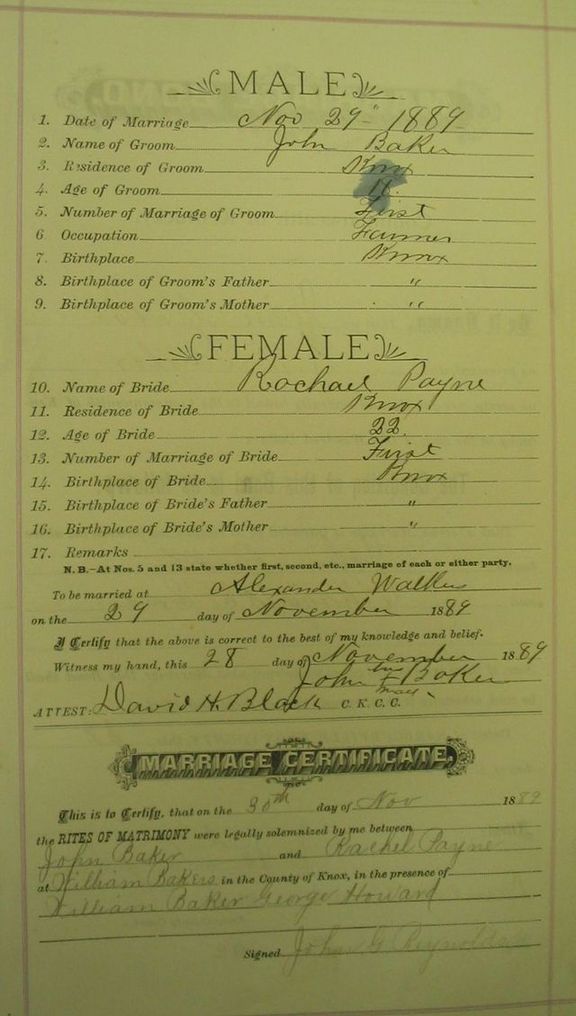 MALE
1. Date of Marriage Nov 29" 1889
2. Name of Groom John Baker
3. Residence of Groom Knox
4. Age of Groom
5. Number of Marriage of Groom First
6 Occupation Farmer
7. Birthplace Knox
8. Birthplace of Groom's Father "
9. Birthplace of Groom's Mother "
FEMALE
10. Name of Bride Rachael Payne
11. Residence of Bride Knox
12. Age of Bride 22
13. Number of Marriage of Bride First
14. Birthplace of Bride Knox
15. Birthplace of Bride's Father "
16. Birthplace of Bride's Mother "
17. Remarks
N. B.—At Nos. 5 and 13 state whether first, second, etc., marriage of each or either party.
To be married at Alexander Walkers
on the 29 day of November 1889
I Certify that the above is correct to the best of my knowledge and belief.
Witness my hand, this 28 day of November 1889
John Baker
mark
ATTEST: David H. Black C. K. C. C.
MARRIAGE CERTIFICATE.
This is to Certify, that on the 30th day of Nov 1889
the RITES OF MATRIMONY were legally solemnized by me between
John Baker and Rachel Payne
at William Bakers in the County of Knox, in the presence of
William Baker George Howard
Signed John G Reynolds